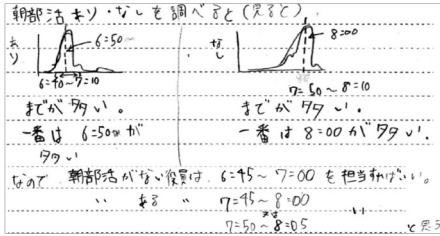 朝部活あり・なしを調べると(見ると)
あり
6:50
6:45~7:10
までが多い。
一番は 6:50が
多い
なし
8:00
7:50~8:10
までが多い。
一番は 8:00が多い。
なので 朝部活がない役員は 6:45~7:00を担当すればいい。
〃 ある 〃 7:45~8:00
又は
7:50~8:05 い
と思う